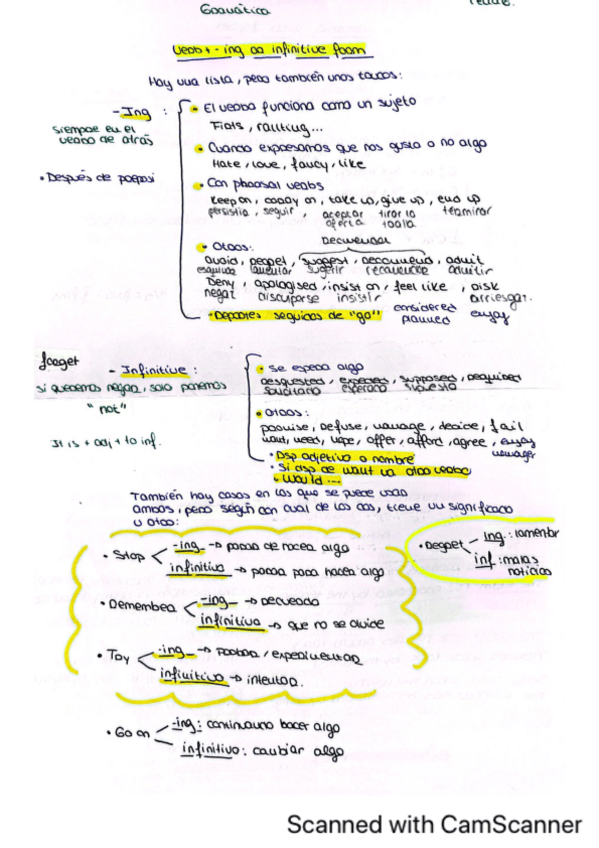 Gramática
verb + -ing or infinitive form
Hay una lista, pero también unos trucos:
- Ing :
siempre en el
verbo de atrás
• Después de preposi
• El verbo funciona como un sujeto
• Cuando expresamos que nos gusta o no algo
Hate, love, fancy, like
• Con phrasal verbs
keep on, carry on, take up, give up, end up
persistir, seguir, aceptar oferta tirar la toalla terminar
• Otros:
avoid, regret, suggest, recommend, admit
esquivar lamentar sugerir recomendar admitir
Deny, apologised, insist on, feel like, risk
negar disculparse insistir arriesgar.
• Deportes seguidos de "go"
considered enjoy
planned
forget
- Infinitive :
si queremos negar, solo ponemos
"not"
It is + adj + to inf.
• Se espera algo
requested, expected, supposed, required
solicitado esperado supuesto
• Otros:
promise, refuse, manage, decide, fail
want, need, hope, offer, afford, agree, enjoy
manager
• Dsp adjetivo o nombre
• Si dsp de want va otro verbo
• Would ...
También hay casos en los que se puede usar
ambos, pero según con cual de los dos, tiene un significado
u otro:
• Stop
-ing → parar de hacer algo
infinitivo → parar para hacer algo
• Remember
-ing → recuerdo
infinitivo → que no se olvide
• Try
-ing → probar / experimentar
infinitivo → intentar.
• Go on
-ing : continuar hacer algo
infinitivo : cambiar algo
• Regret
ing : lamentar
inf : malas
noticias
Scanned with CamScanner